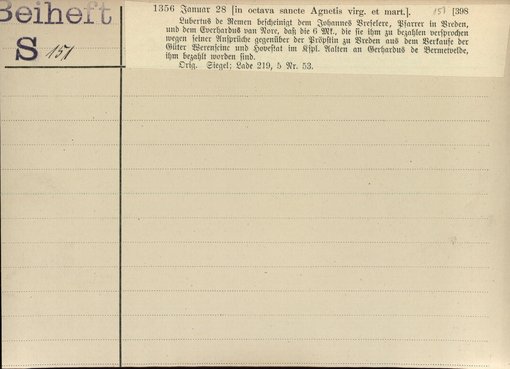 Beiheft
S 151
1356 Januar 28 [in octava sancte Agnetis virg. et mart.]. 151 [398
Lubertus de Remen bescheinigt dem Johannes Vrieselere, Pfarrer in Vreden,
und dem Everhardus van Nore, daß die 6 Mk., die sie ihm zu bezahlen versprochen
wegen seiner Ansprüche gegenüber der Pröpstin zu Vreden aus dem Verkaufe der
Güter Werenseinc und Hovestat im Kspl. Aalten an Gerhardus de Bermetvelde,
ihm bezahlt worden sind.
Orig. Siegel; Lade 219, 5 Nr. 53.